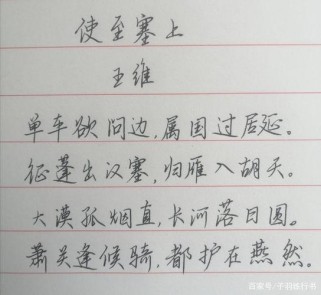 使至塞上
王维
单车欲问边,属国过居延。
征蓬出汉塞,归雁入胡天。
大漠孤烟直,长河落日圆。
萧关逢候骑,都护在燕然。
百家号/子羽练行书